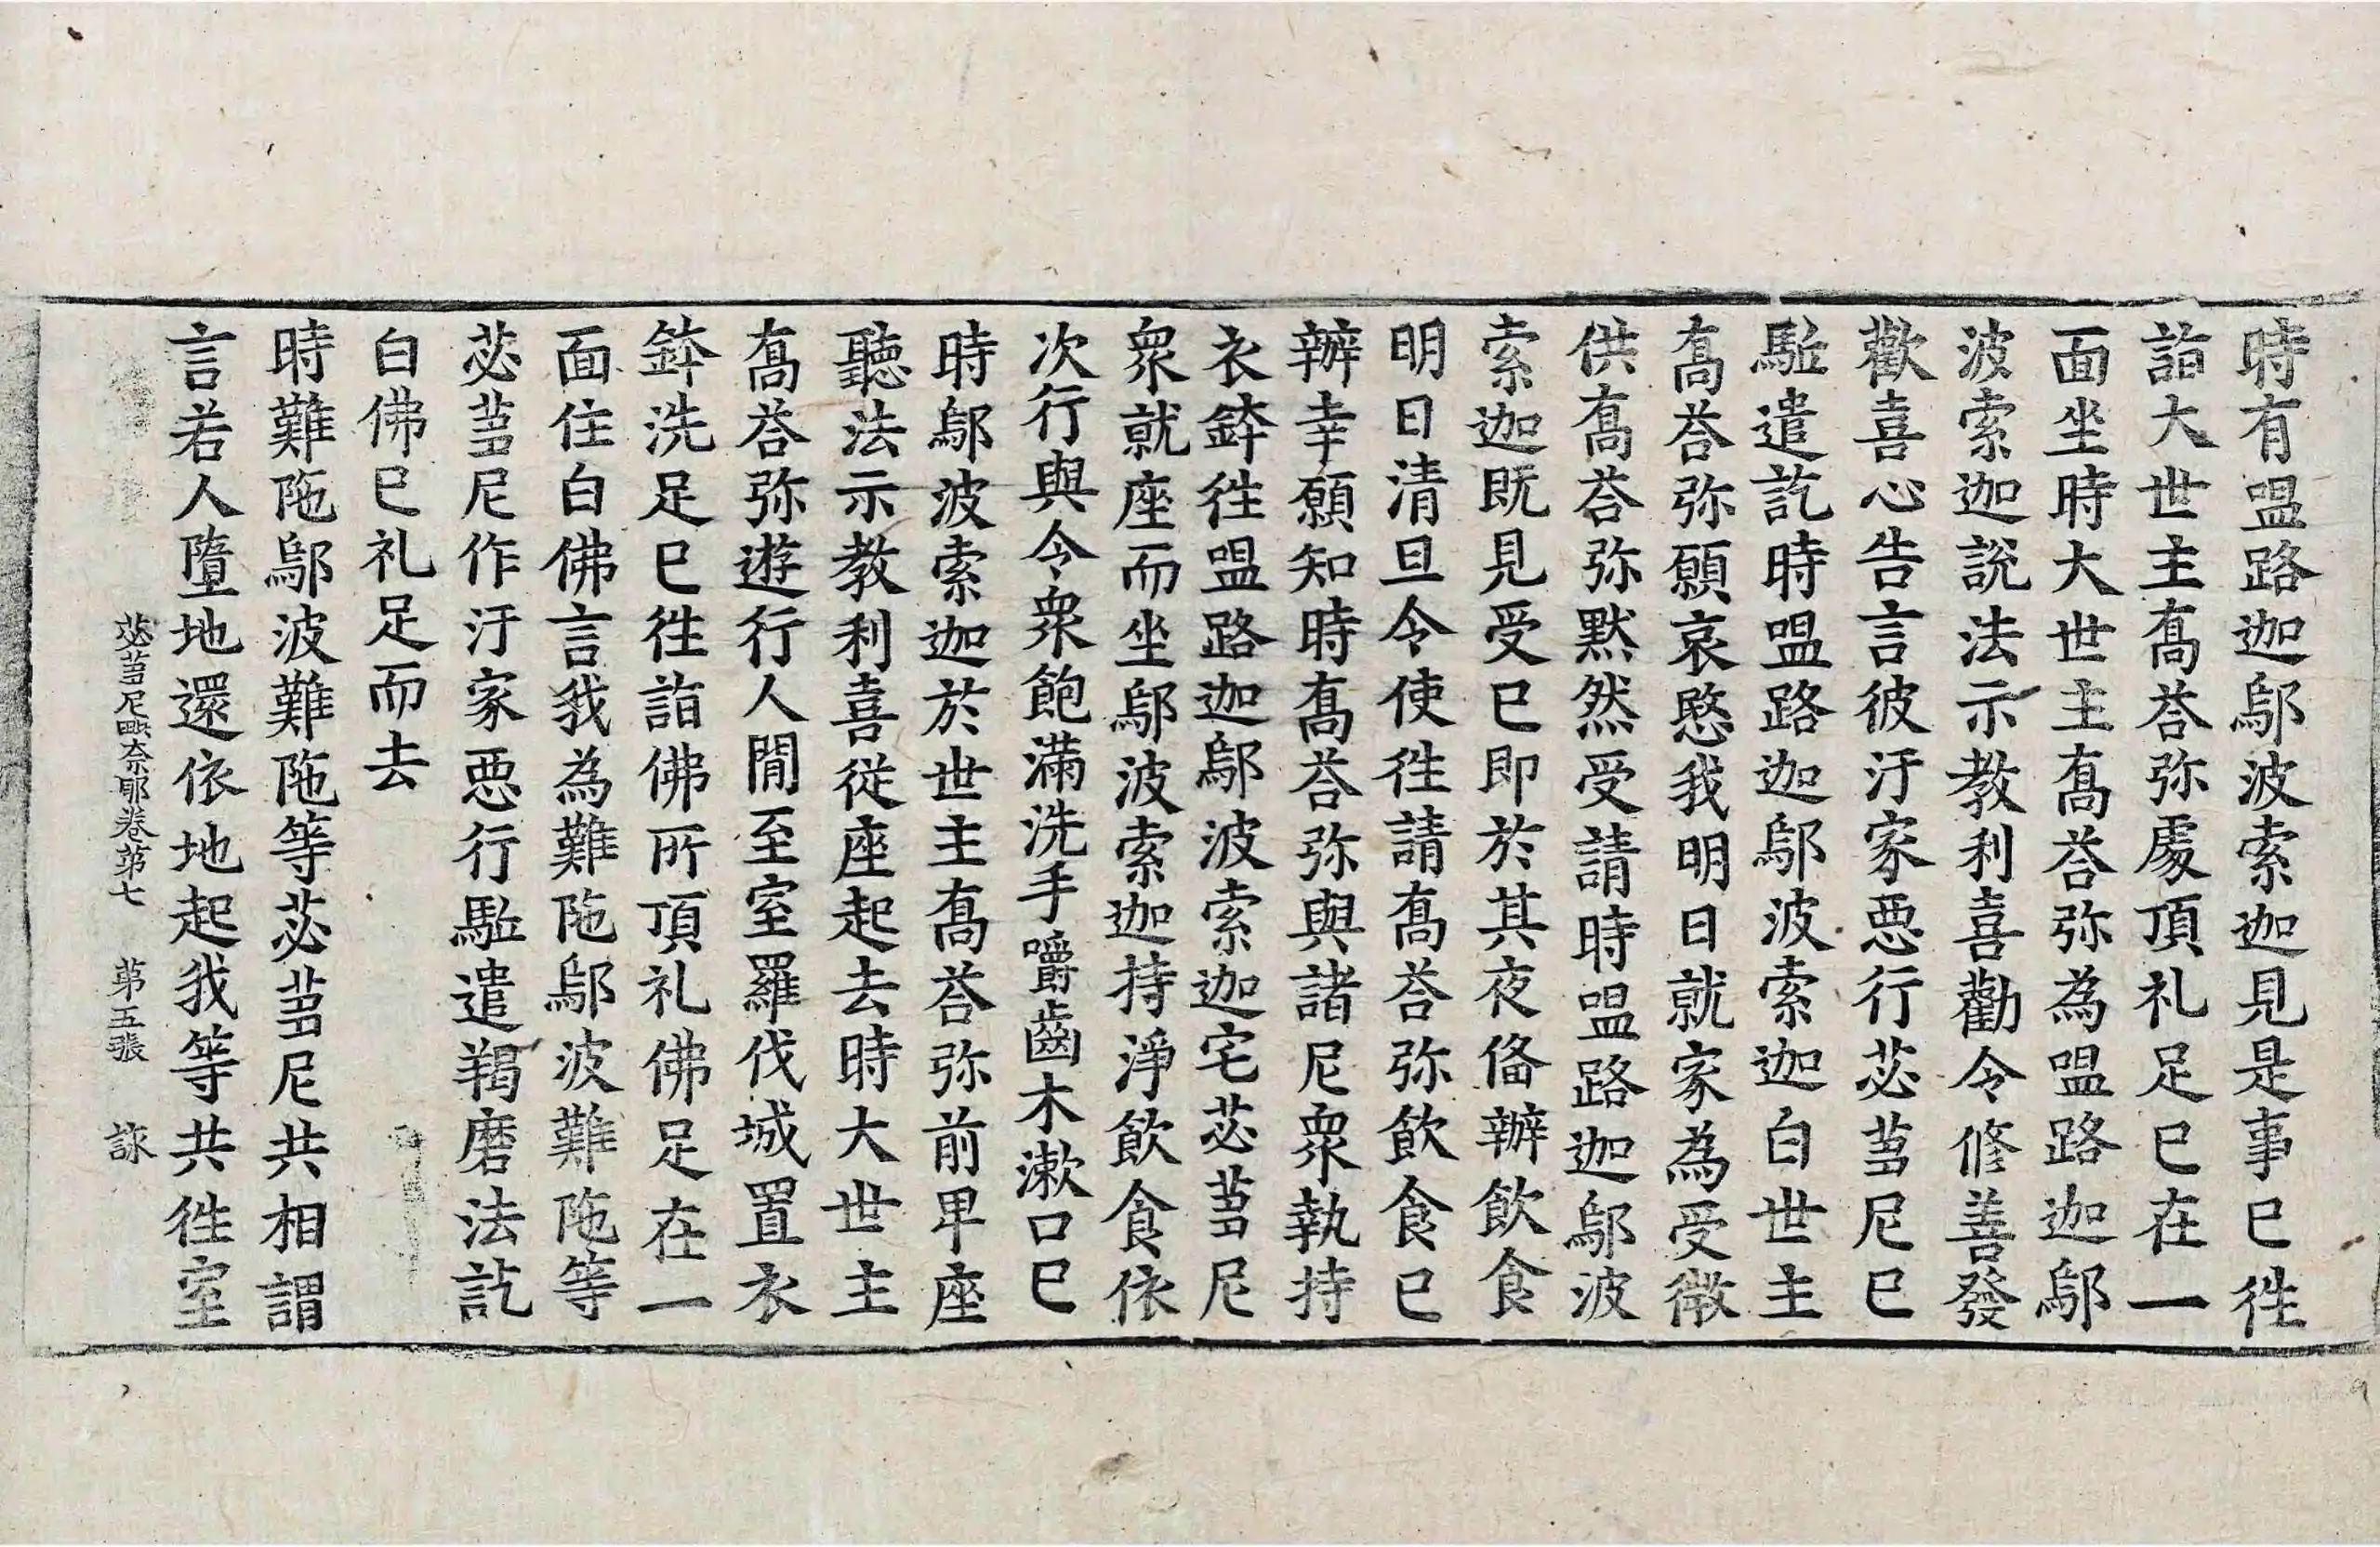 時有𥁕路迦鄔波索迦見是事已徃
詣大世主髙荅弥處頂礼足已在一
面坐時大世主髙荅弥為𥁕路迦鄔
波索迦說法示教利喜勸令修善發
歡喜心告言彼汙家惡行苾芻尼已
駈遣訖時𥁕路迦鄔波索迦白世主
髙荅弥願哀愍我明日就家為受微
供髙荅弥黙然受請時𥁕路迦鄔波
索迦既見受已即於其夜俻辦飲食
明日清旦令使徃請髙荅弥飲食已
辦幸願知時髙荅弥與諸尼衆執持
衣鉢徃𥁕路迦鄔波索迦宅苾芻尼
衆就座而坐鄔波索迦持淨飲食依
次行與令衆飽滿洗手嚼齒木漱口已
時鄔波索迦於世主髙荅弥前卑座
聽法示教利喜從座起去時大世主
髙荅弥遊行人閒至室羅伐城置衣
鉢洗足已徃詣佛所頂礼佛足在一
面住白佛言我為難陁鄔波難陁等
苾芻尼作汙家惡行駈遣羯磨法訖
白佛已礼足而去
時難陁鄔波難陁等苾芻尼共相謂
言若人墮地還依地起我等共徃室
苾芻尼毗奈耶卷苐七 苐五張 詠